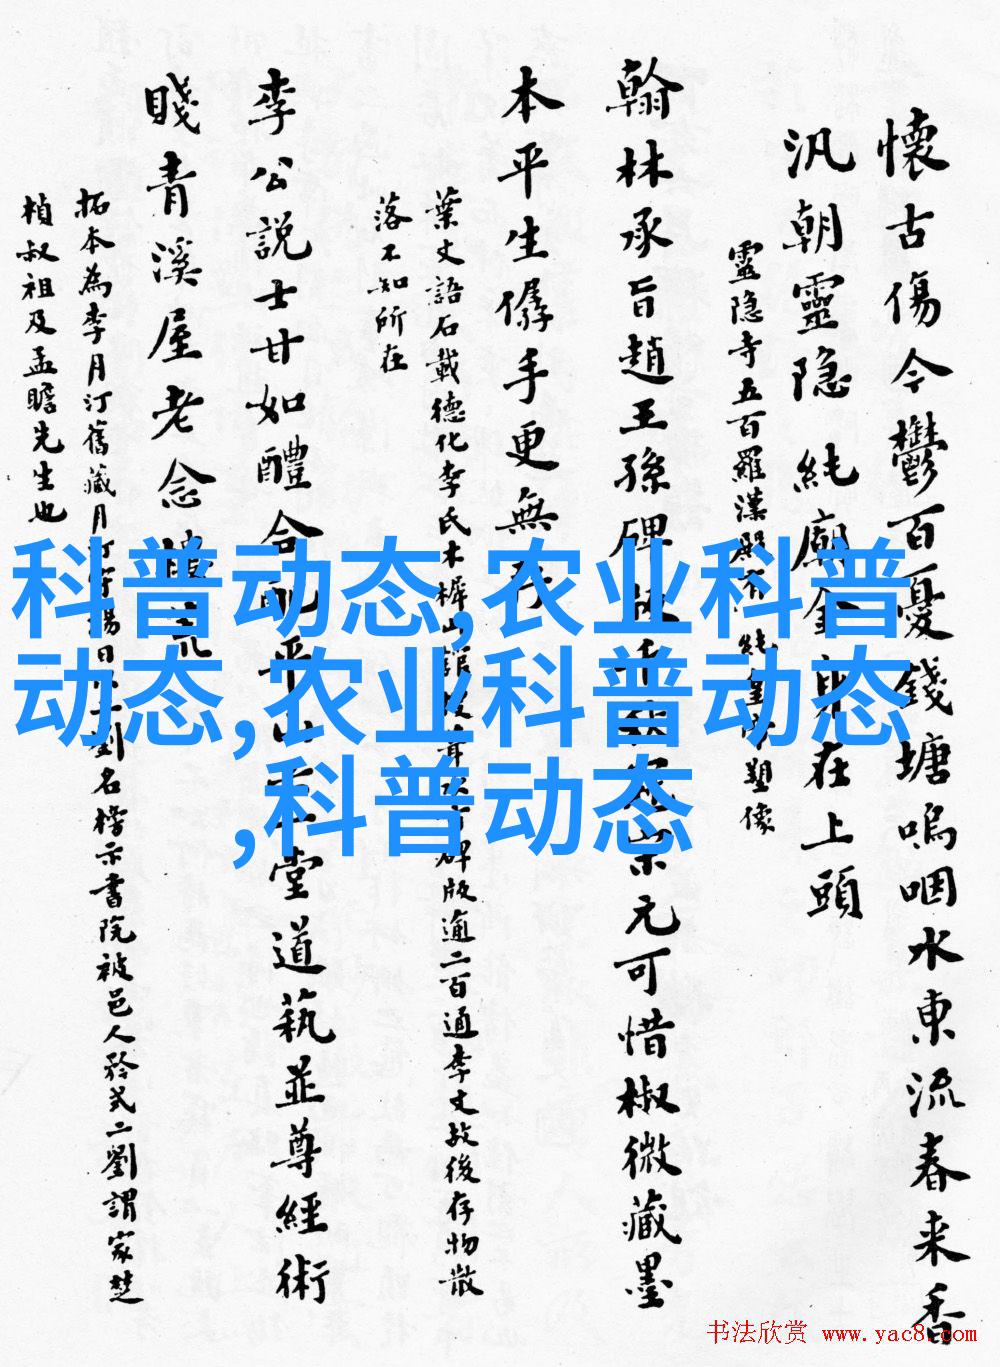 懷古傷今鬱百憂錢塘嗚咽水東流春来香
汎朝靈隐純廟金身在上頭
靈隐寺五百羅漢殿有純皇帝塑像
翰林承旨趙王孫碑版
宗元可惜椒微藏墨
本平生僝手更無
葉文語石載德化李氏木樨山館
碑版逾二百通李文故後存物散
落不知所在
李公説士甘如醴合配平山
堂道藝並尊經術
賤青溪屋老念
拓本為李月汀舊藏月汀
劉名榜示書院被邑人矜式二劉謂家楚
楨叔祖及孟瞻先生也
科普动态,农业科普
动态,农业科普动态
,科普动态
书法欣赏 www.yac8.com